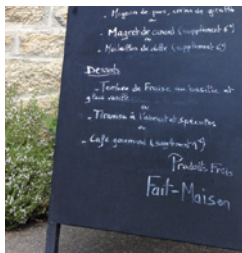 - Mignon de porc, crème de girolle
ou
- Magret de canard (supplément 6€)
ou
- Médaillon de lotte (supplément 6€)
Desserts
- Terrine de Fraise au basilic et
glace vanille
ou
- Tiramisu à l'abricot et spéculos
ou
- Café gourmand (supplément 4€)
Produits Frais
Fait-Maison